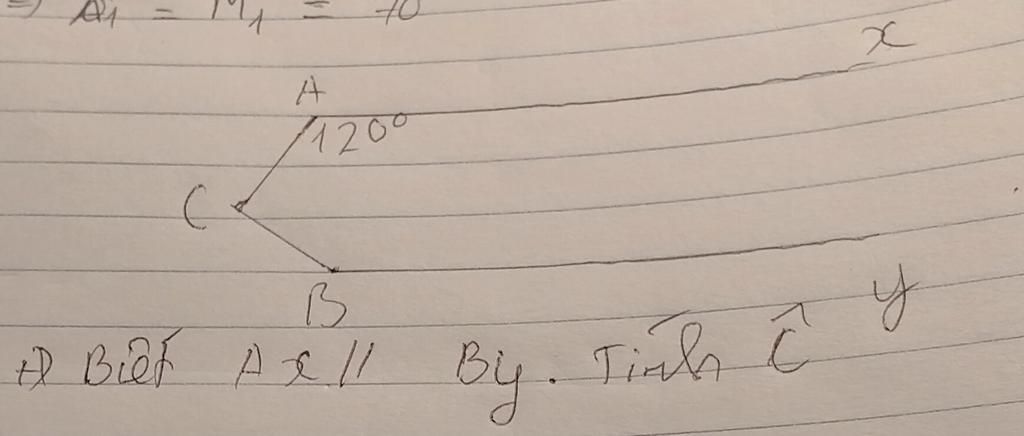 => A1 = M1 = 70
x
A
120°
C
B
y
+) Biết Ax // By. Tính Ĉ